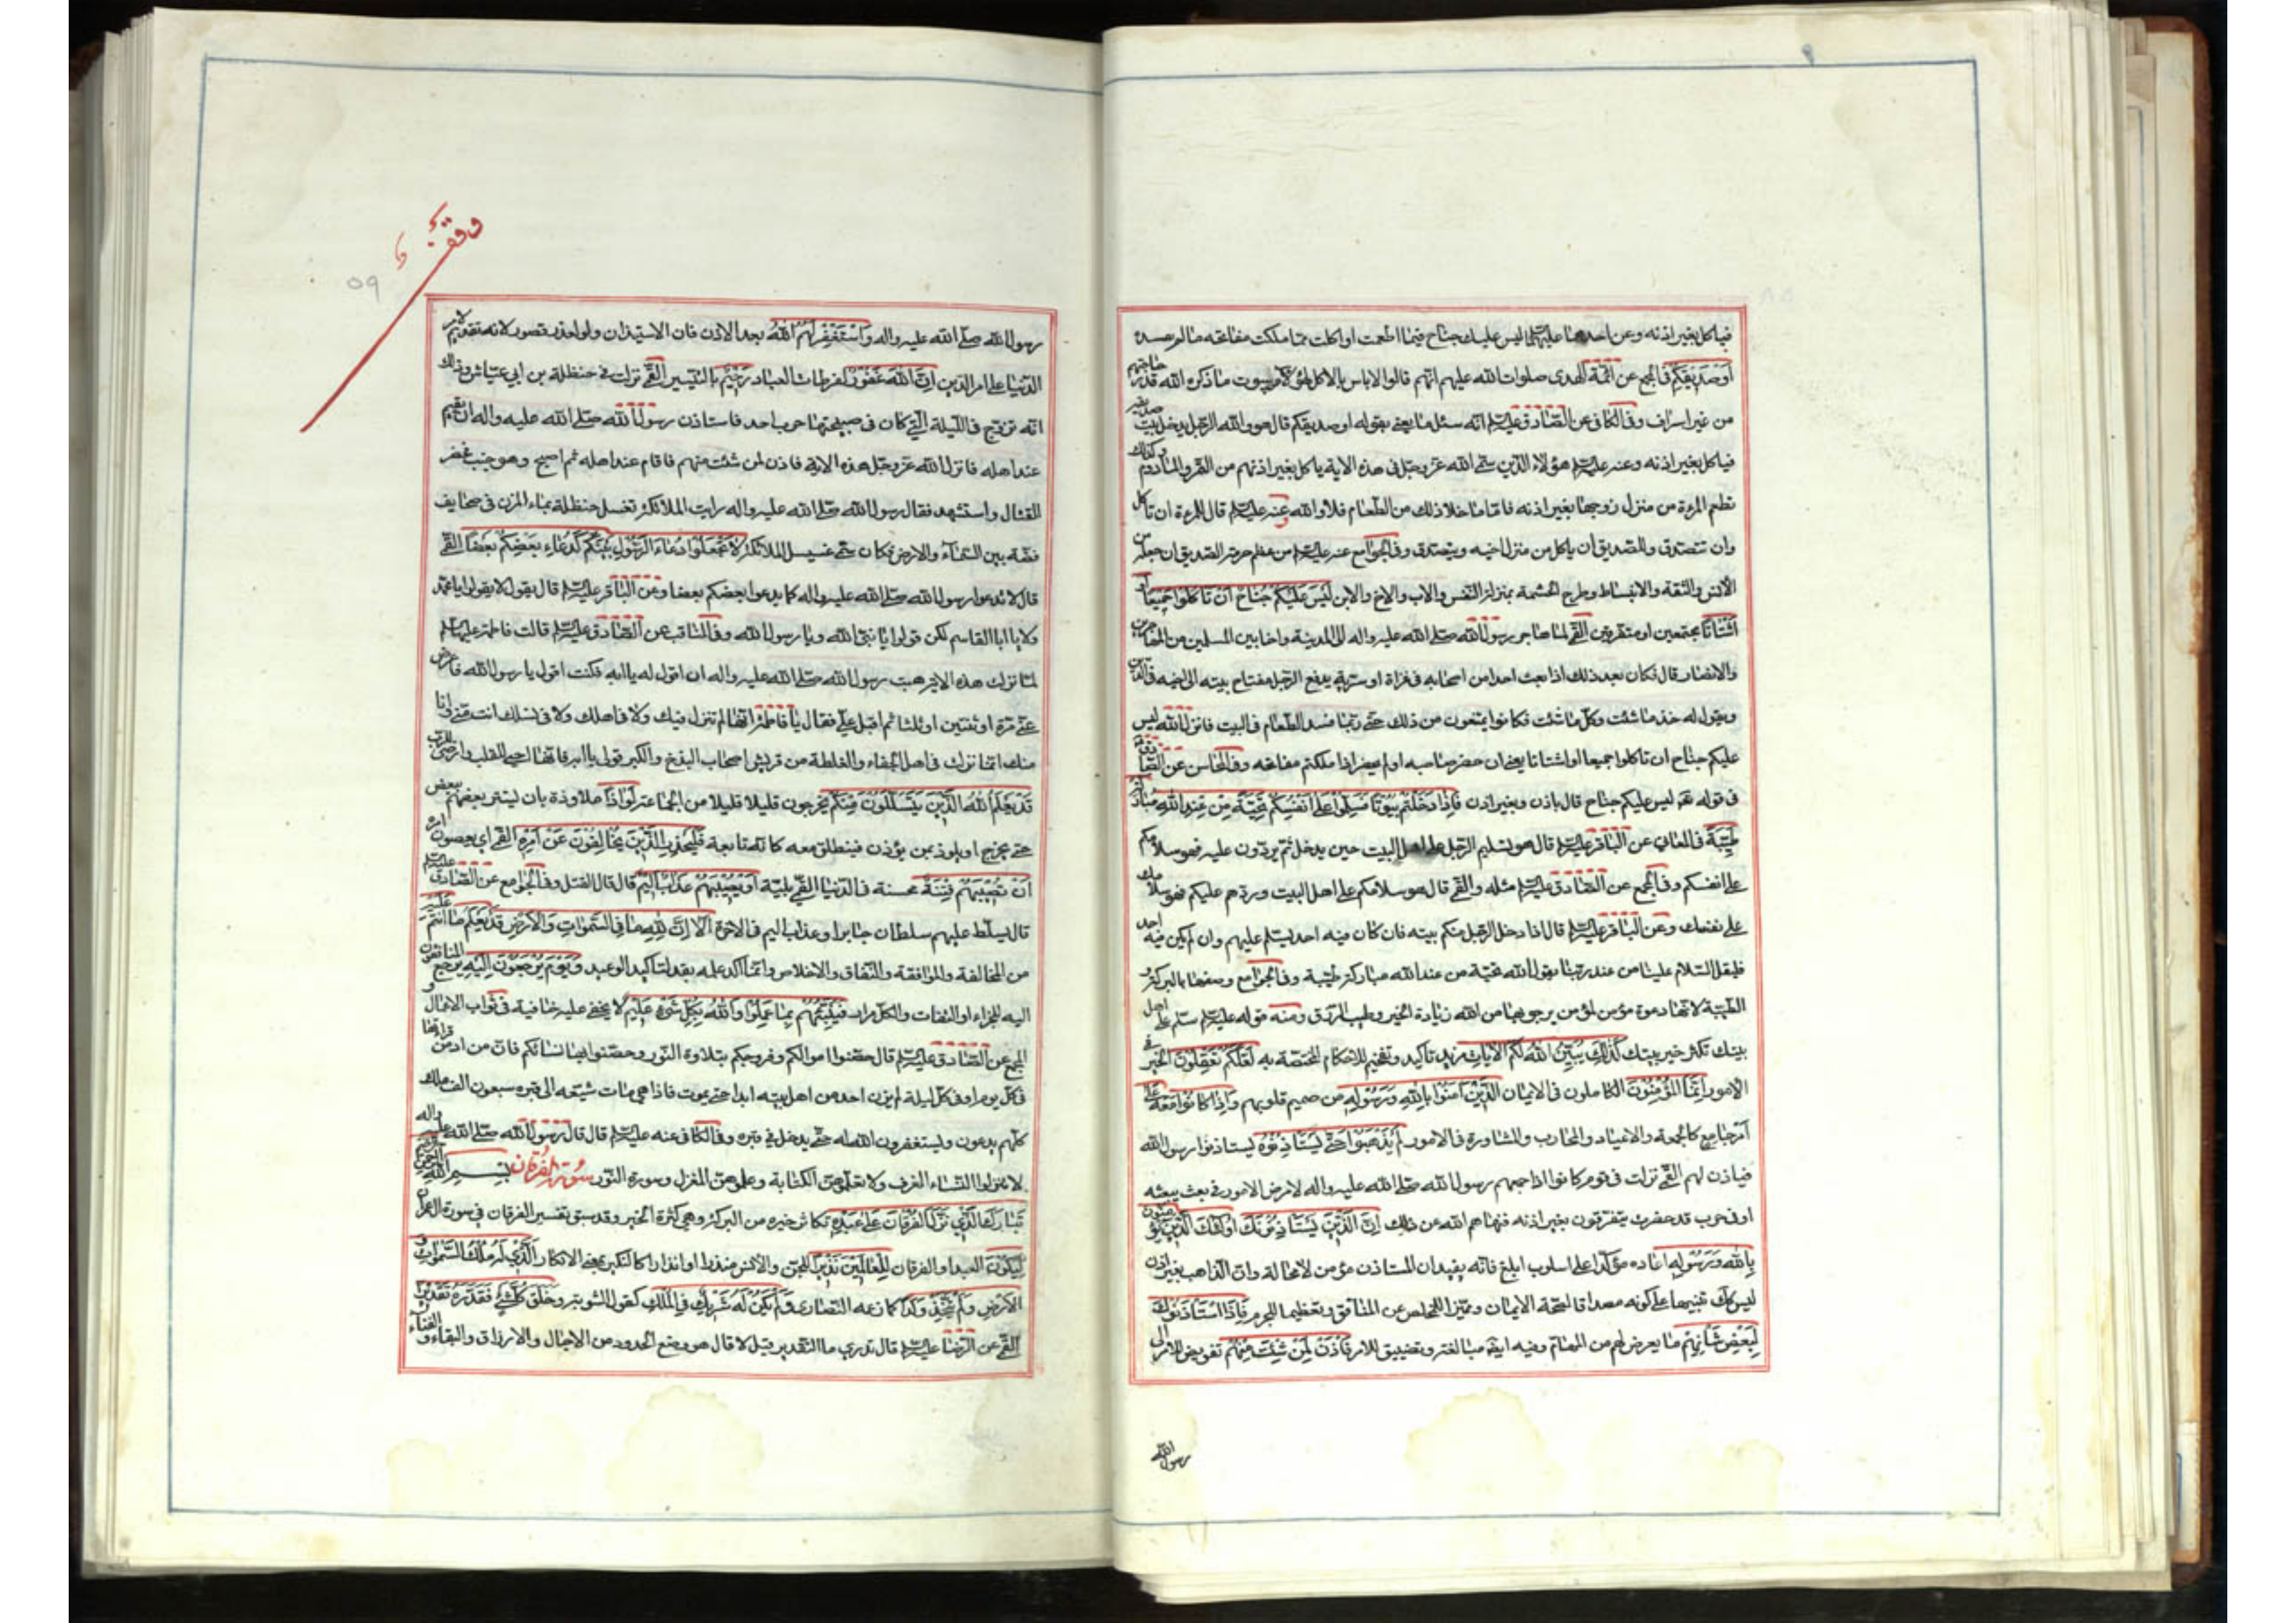 فياكل بغير اذنه وعن احدهما عليهما السلام ليس عليك جناح فيما اطعمت او اكلت مما ملكت مفاتحه ما لم تفسده
اَوْ صَديقِكُمْ في المجمع عن ائمة الهدى صلوات الله عليهم انهم قالوا لا باس بالاكل لهؤلاء من بيوت من ذكره الله قدر حاجتهم
من غير اسراف وفي الكافي عن الصادق عليه السلم انه سئل ما يعني بقوله او صديقكم قال هو والله الرجل يدخل بيت صديقه
فياكل بغير اذنه وعنه عليه السلم هؤلاء الذين سمى الله عز وجل في هذه الاية ياكل بغير اذنهم من التمر والمادوم وكذلك
تطعم المرءة من منزل زوجها بغير اذنه فاما ما خلا ذلك من الطعام فلا والله وعنه عليه السلم قال للمرءة ان تاكل
وان تتصدق وللصديق ان ياكل من منزل اخيه ويتصدق وفي الجوامع عنه عليه السلم من عظم حرمة الصديق ان جعله من
الانس والثقة والانبساط وطرح الحشمة بمنزلة النفس والاب والاخ والابن لَيْسَ عَلَيْكُمْ جُناحٌ اَنْ تَاْكُلُوا جَميعًا اَوْ
اَشْتاتًا مجتمعين او متفرقين القمي لما هاجر رسول الله صلى الله عليه واله الى المدينة واخا بين المسلمين من المهاجرين
والانصار قال فكان بعد ذلك اذا بعث احدا من اصحابه في غزاة او سرية يدفع الرجل مفتاح بيته الى اخيه في الدين
ويقول له خذ ما شئت وكل ما شئت فكانوا يمتنعون من ذلك حتى ربما فسد الطعام في البيت فانزل الله ليس
عليكم جناح ان تاكلوا جميعا او اشتاتا يعني ان حضر صاحبه او لم يحضر اذا ملكتم مفاتحه وفي المحاسن عن الصادق
في قوله تعه ليس عليكم جناح قال باذن وبغير اذن فَاِذا دَخَلْتُمْ بُيُوتًا فَسَلِّمُوا عَلى اَنْفُسِكُمْ تَحِيَّةً مِنْ عِنْدِ اللهِ مُبارَكَةً
طَيِّبَةً في المعاني عن الباقر عليه السلم قال هو تسليم الرجل على اهل البيت حين يدخل ثم يردون عليه فهو سلامكم
على انفسكم وفي المجمع عن الصادق عليه السلم مثله والقمي قال هو سلامكم على اهل البيت وردهم عليكم فهو سلامك
على نفسك وعن الباقر عليه السلم قال اذا دخل الرجل منكم بيته فان كان فيه احد يسلم عليهم وان لم يكن فيه احد
فليقل السلام علينا من عند ربنا يقول الله تحية من عند الله مباركة طيبة وفي الجوامع وصفها بالبركة و
الطيبة لانها دعوة مؤمن لمؤمن يرجو بها من الله زيادة الخير وطيب الرزق ومنه قوله عليه السلم سلم على اهل
بيتك تكثر خير بيتك كَذلِكَ يُبَيِّنُ اللهُ لَكُمُ الْاياتِ مزيد تاكيد وتفخيم للاحكام المختتمة به لَعَلَّكُمْ تَعْقِلُونَ الخير في
الامور اِنَّمَا الْمُؤْمِنُونَ الكاملون في الايمان الَّذينَ امَنُوا بِاللهِ وَرَسُولِهِ من صميم قلوبهم وَاِذا كانُوا مَعَهُ عَلى
اَمْرٍ جامِعٍ كالجمعة والاعياد والمحارب والمشاورة في الامور لَمْ يَذْهَبُوا حَتّى يَسْتَاْذِنُوهُ يستاذنوا رسول الله
فياذن لهم القمي نزلت في قوم كانوا اذا جمعهم رسول الله صلى الله عليه واله لامر من الامور في بعث يبعثه
او في حرب قد حضرت يتفرقون بغير اذنه فنهاهم الله عن ذلك اِنَّ الَّذينَ يَسْتَاْذِنُونَكَ اُولئِكَ الَّذينَ يُؤْمِنُونَ
بِاللهِ وَرَسُولِهِ اعاده مؤكدا على اسلوب ابلغ فانه يفيد ان المستاذن مؤمن لا محالة وان الذاهب بغير اذن
ليس كك تنبيها على كونه مصداقا لصحة الايمان ومميزا للمخلص عن المنافق وتعظيما للجرم فَاِذَا اسْتَاْذَنُوكَ
لِبَعْضِ شَاْنِهِمْ ما يعرض لهم من المهام وفيه ايضا مبالغة وتضييق للامر فَاْذَنْ لِمَنْ شِئْتَ مِنْهُمْ تفويض للامر الى
رسول الله
وقف
59
رسول الله صلى الله عليه واله وَاسْتَغْفِرْ لَهُمُ اللهَ بعد الاذن فان الاستيذان ولو لعذر قصور لانه تقديم لامر
الدنيا على امر الدين اِنَّ اللهَ غَفُورٌ لفرطات العباد رَحيمٌ بالتيسير القمي نزلت في حنظلة بن ابي عياش وذلك
انه تزوج في الليلة التي كان في صبيحتها حرب احد فاستاذن رسول الله صلى الله عليه واله ان يقيم
عند اهله فانزل الله عز وجل هذه الاية فاذن لمن شئت منهم فاقام عند اهله ثم اصبح وهو جنب فحضر
القتال واستشهد فقال رسول الله صلى الله عليه واله رايت الملائكة تغسل حنظلة بماء المزن في صحايف
فضة بين السماء والارض فكان سمي غسيل الملائكة لا تَجْعَلُوا دُعاءَ الرَّسُولِ بَيْنَكُمْ كَدُعاءِ بَعْضِكُمْ بَعْضًا القمي
قال لا تدعوا رسول الله صلى الله عليه واله كما يدعوا بعضكم بعضا وعن الباقر عليه السلم قال يقول لا تقولوا يا محمد
ولا يا ابا القاسم لكن قولوا يا نبي الله ويا رسول الله وفي المناقب عن الصادق عليه السلم قالت فاطمة عليها السلم
لما نزلت هذه الاية هبت رسول الله صلى الله عليه واله ان اقول له يا ابه فكنت اقول يا رسول الله فاعرض
عني مرة او ثنتين او ثلثا ثم اقبل علي فقال يا فاطمة انها لم تنزل فيك ولا في اهلك ولا في نسلك انت مني وانا
منك انما نزلت في اهل الجفاء والغلظة من قريش اصحاب البذخ والكبر قولي يا ابه فانها احيى للقلب وارضى للرب
قَدْ يَعْلَمُ اللهُ الَّذينَ يَتَسَلَّلُونَ مِنْكُمْ يخرجون قليلا قليلا من الجماعة لِواذًا ملاوذة بان ليستتر بعضهم ببعض
حتى يخرج او يلوذ بمن يؤذن فينطلق معه كانه تابعه فَلْيَحْذَرِ الَّذينَ يُخالِفُونَ عَنْ اَمْرِهِ القمي اي يعصون امره
اَنْ تُصيبَهُمْ فِتْنَةٌ محنة في الدنيا القمي بلية اَوْ يُصيبَهُمْ عَذابٌ اَليمٌ قال قال القتل وفي الجوامع عن الصادق عليه السلم
قال يسلط عليهم سلطان جابر او عذاب اليم في الاخرة اَلا اِنَّ لِلّهِ ما فِي السَّمواتِ وَالْاَرْضِ قَدْ يَعْلَمُ ما اَنْتُمْ عَلَيْهِ
من المخالفة والموافقة والنفاق والاخلاص وانما اكد علمه بقد لتاكيد الوعيد وَيَوْمَ يُرْجَعُونَ اِلَيْهِ يرجع المنافقون
اليه للجزاء او الثفات والكل مراد فَيُنَبِّئُهُمْ بِما عَمِلُوا وَاللهُ بِكُلِّ شَيْءٍ عَليمٌ لا يخفى عليه خافية في ثواب الاعمال و
المجمع عن الصادق عليه السلم قال حصنوا اموالكم وفروجكم بتلاوة النور وحصنوا بها نسائكم فان من ادمن قرائتها
في كل يوم او في كل ليلة لم يزن احد من اهل بيته ابدا حتى يموت فاذا هو مات شيعه الى قبره سبعون الف ملك
كلهم يدعون ويستغفرون الله له حتى يدخل في قبره وفي الكافي عنه عليه السلم قال قال رسول الله صلى الله عليه واله
لا تنزلوا النساء الغرف ولا تعلموهن الكتابة وعلموهن المغزل وسورة النور سُورَةُ الْفُرْقان بِسْمِ اللهِ الرَّحْمنِ الرَّحيمِ
تَبارَكَ الَّذي نَزَّلَ الْفُرْقانَ عَلى عَبْدِهِ تكاثر خيره من البركة وهي كثرة الخير وقد سبق تفسير الفرقان في سورة ال عمران
لِيَكُونَ العبد او الفرقان لِلْعالَمينَ نَذيرًا للجن والانس منذرا او انذارا كالنكير بمعنى الانكار اَلَّذي لَهُ مُلْكُ السَّمواتِ وَ
الْاَرْضِ وَلَمْ يَتَّخِذْ وَلَدًا كما زعمه النصارى وَلَمْ يَكُنْ لَهُ شَريكٌ فِي الْمُلْكِ كقول الثنوية وَخَلَقَ كُلَّ شَيْءٍ فَقَدَّرَهُ تَقْديرًا
القمي عن الرضا عليه السلم قال تدري ما التقدير قيل لا قال هو وضع الحدود من الاجال والارزاق والبقاء والفناء